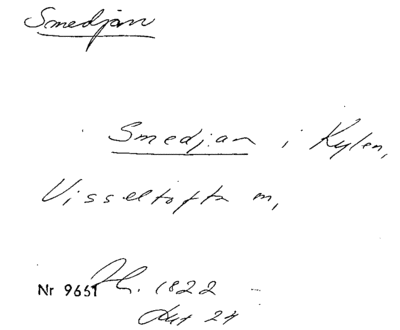 Smedjan
Smedjan i Kylen,
Visseltofta m,
Nr 9651 1822 –